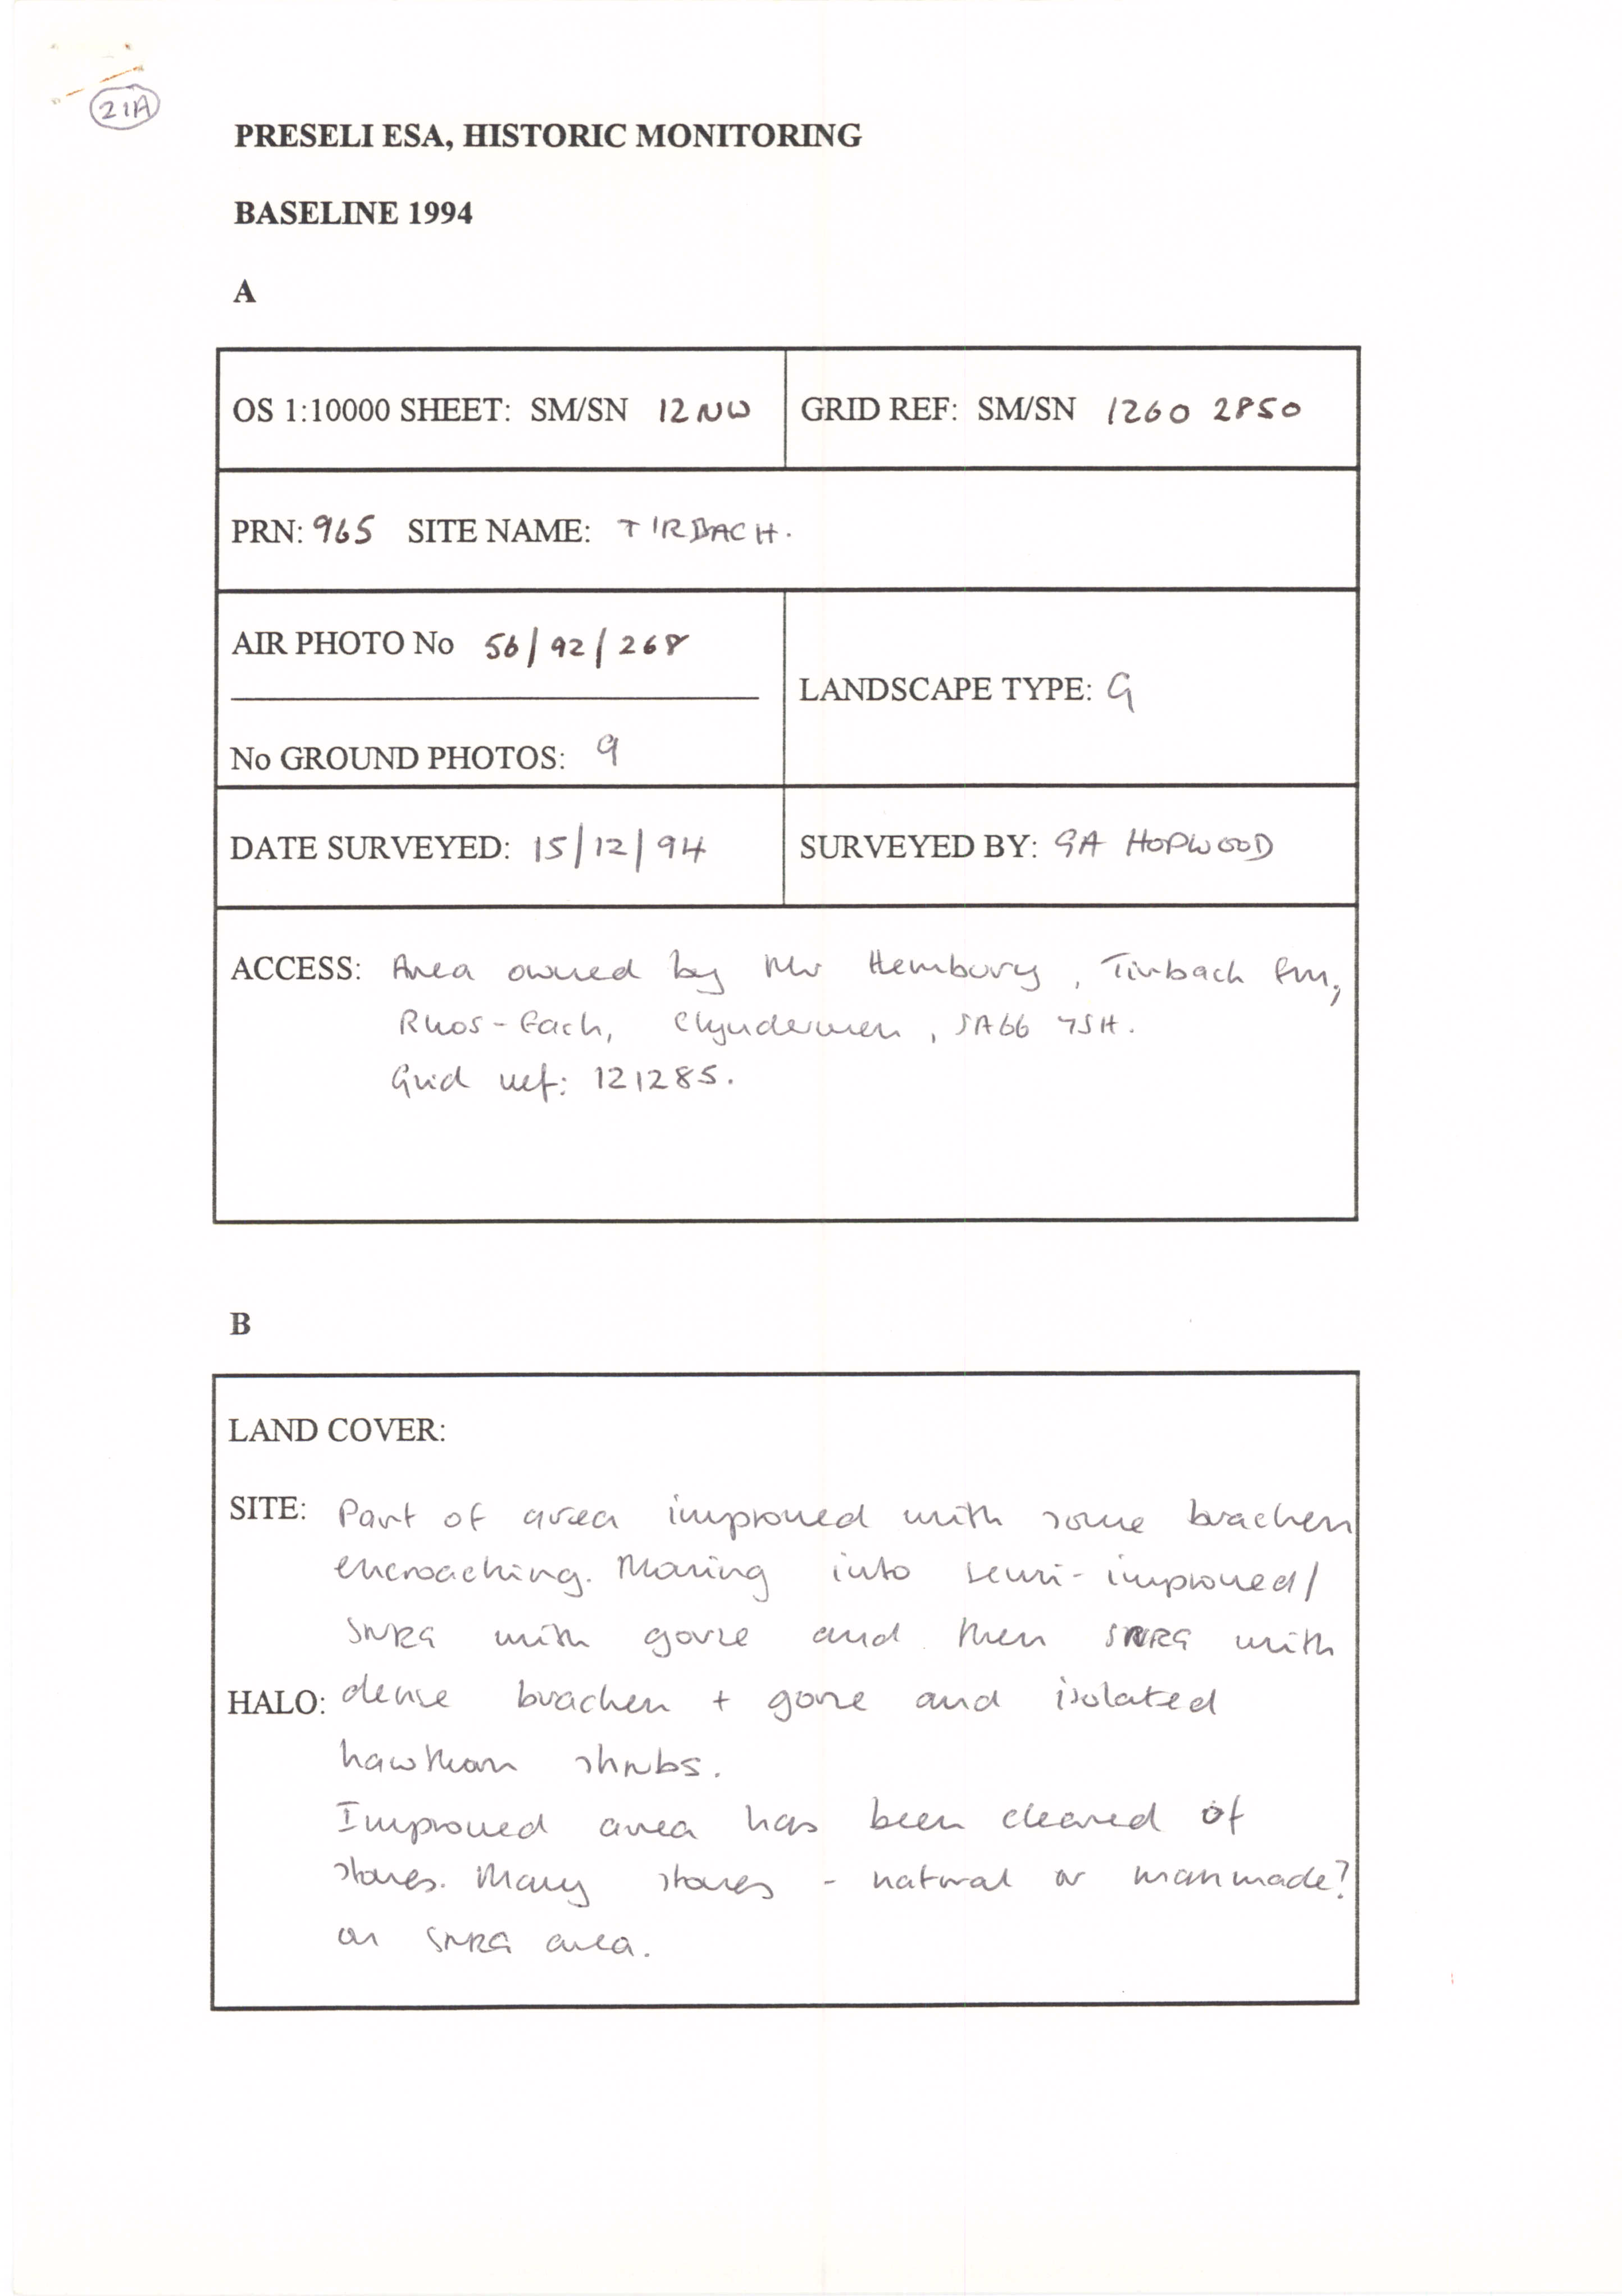 21A
PRESELI ESA, HISTORIC MONITORING
BASELINE 1994
A
OS 1:10000 SHEET: SM/SN 12NW
GRID REF: SM/SN 1260 2850
PRN: 965 SITE NAME: TIRBACH.
AIR PHOTO No 56/92/268
LANDSCAPE TYPE: G
No GROUND PHOTOS: 9
DATE SURVEYED: 15/12/94
SURVEYED BY: GA HOPWOOD
ACCESS: Area owned by Mr Hembury, Tirbach Fm,
Rhos-Fach, Clynderwen, SA66 7SH.
Grid ref: 121285.
B
LAND COVER:
SITE: Part of area improved with some bracken
encroaching. Moving into semi-improved/
SNRG with gorse and then SNRG with
HALO: dense bracken + gorse and isolated
hawthorn shrubs.
Improved area has been cleared of
stones. Many stones - natural or manmade?
on SNRG area.